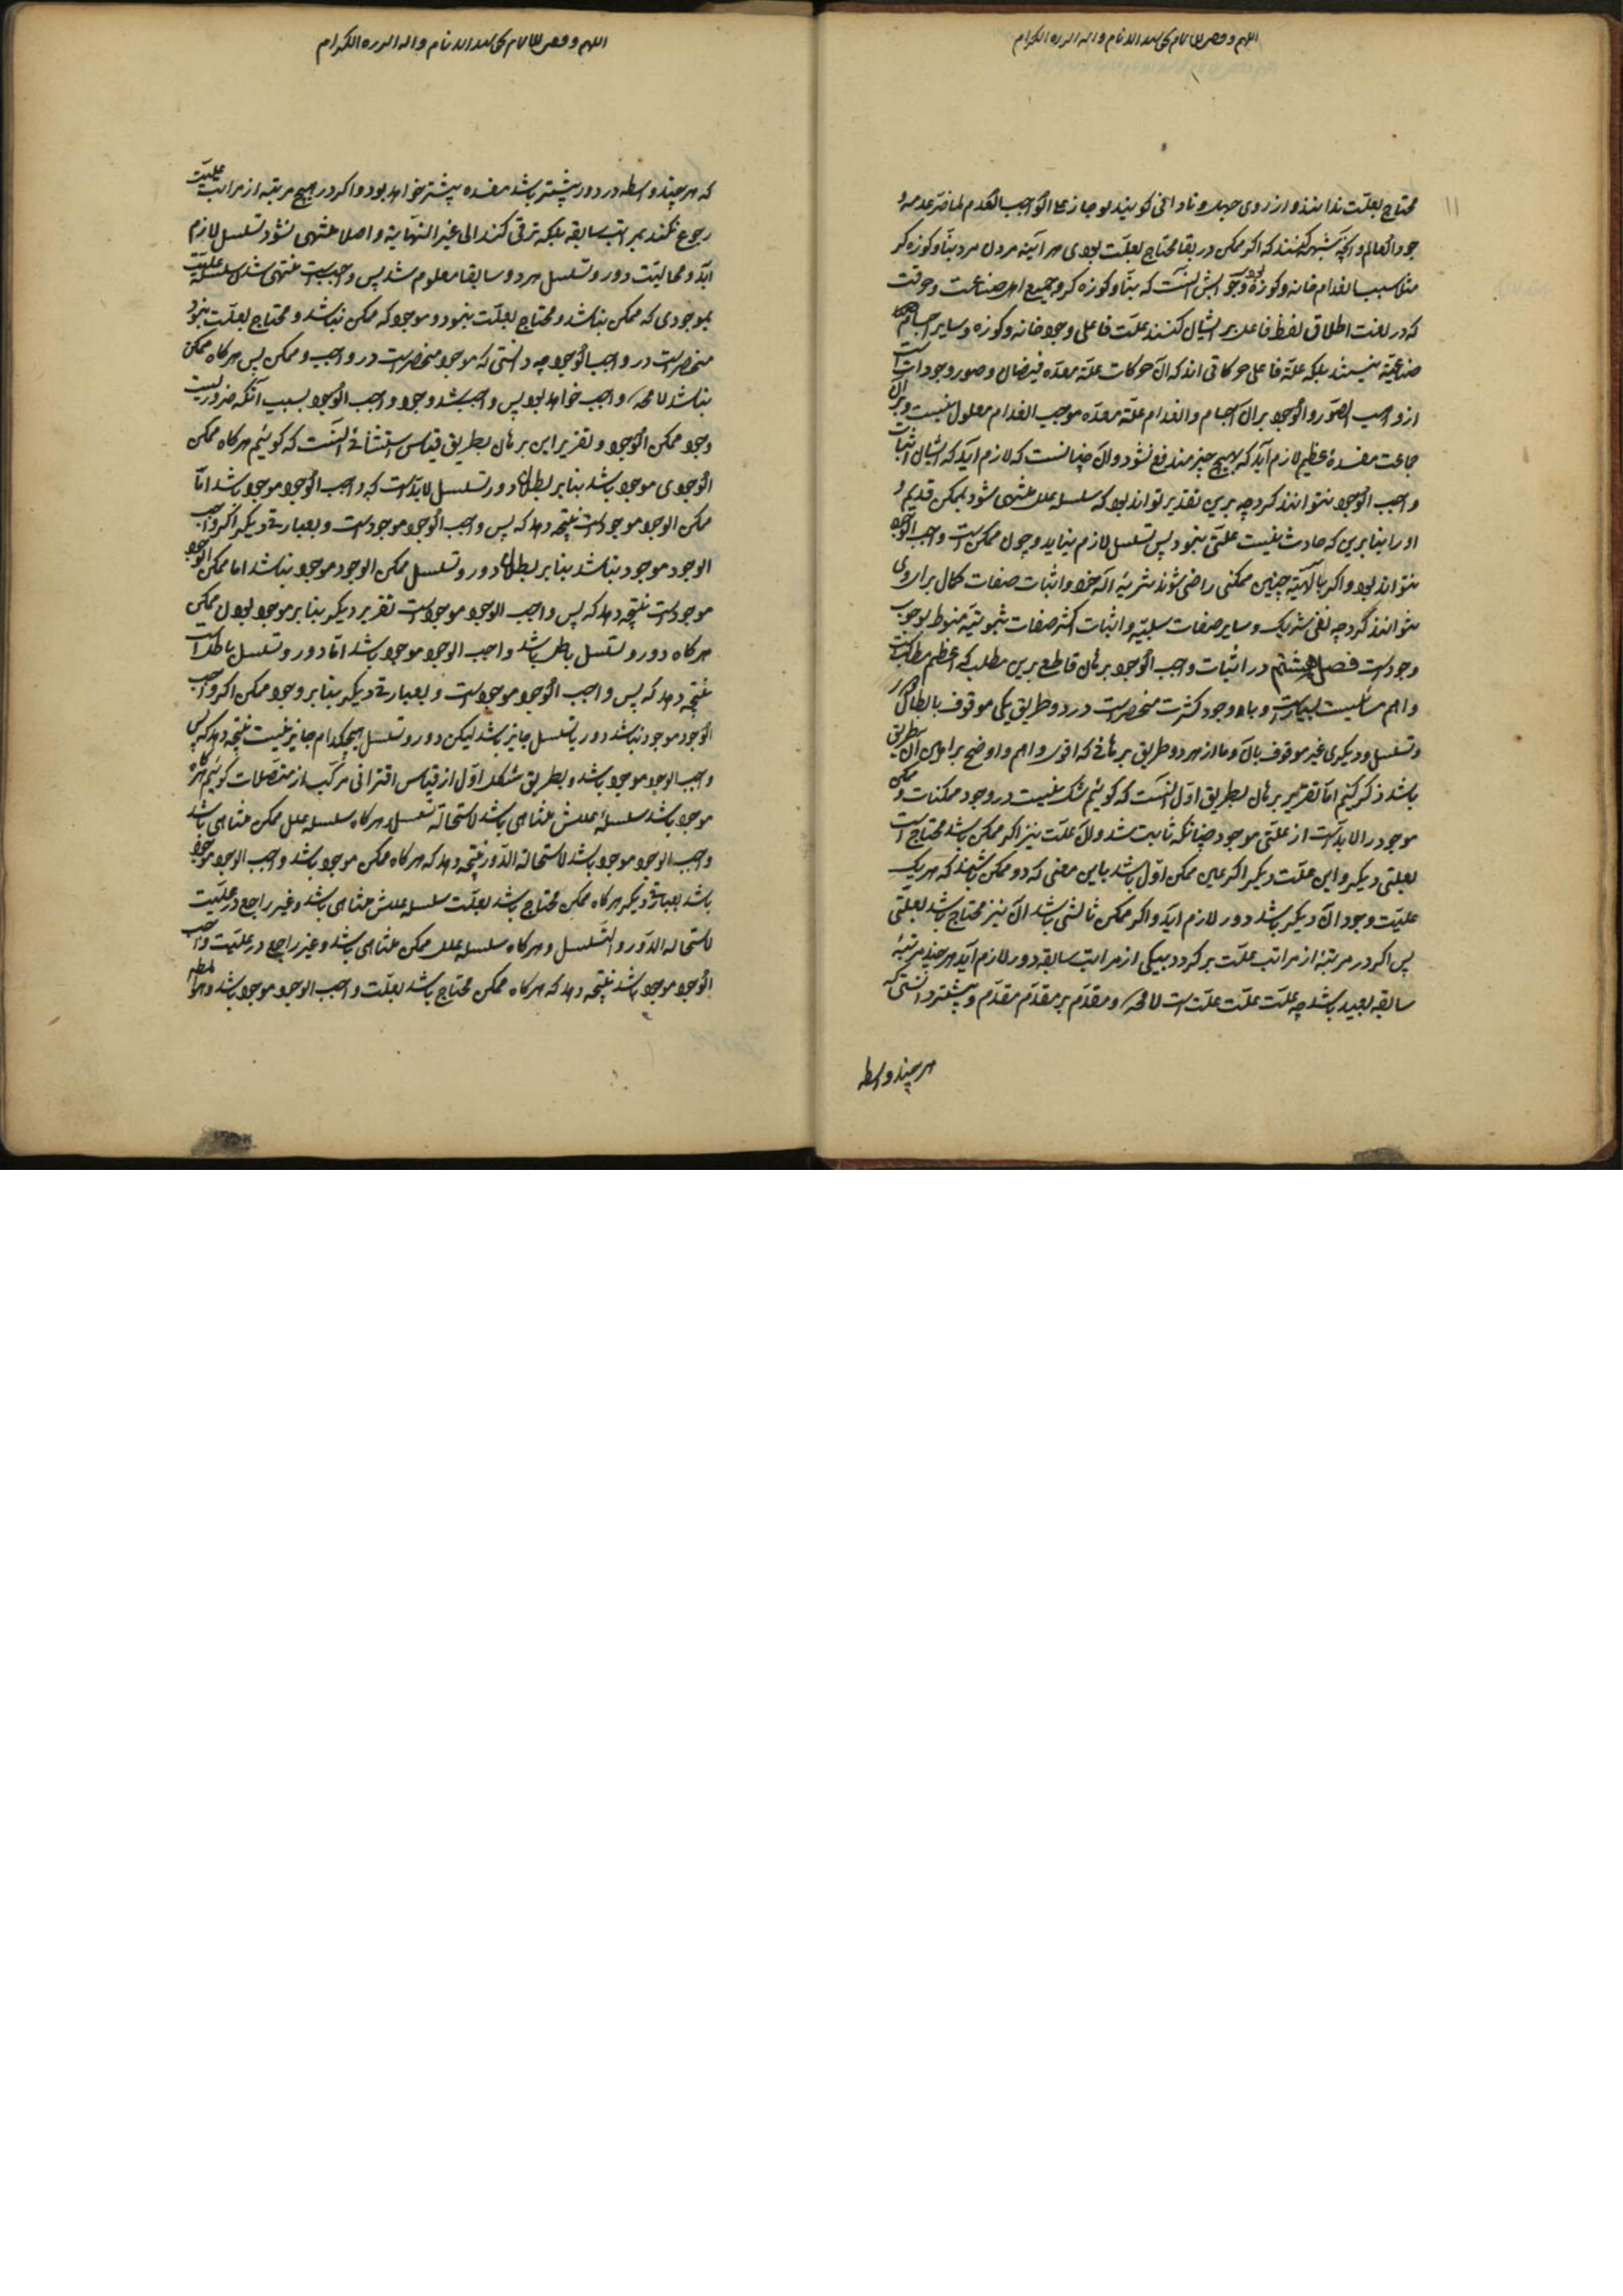 محتاج بعلّت ندانند و از روی جهل و نادانی کویند لو جاز علی الواجب العدم لما ضرّ عدمه
وجود العالم و آنچه شبهه کفتند که اکر ممکن در بقا محتاج بعلّت بودی هر آینه مردن مرد بنّا و کوزه کر
مثلا سبب انعدام خانه و کوزه بودی و جوابش آنست که بنّا و کوزه کر و جمیع اهل صناعت و حرفت
که در لغت اطلاق لفظ فاعل بر ایشان کنند علّت فاعلی وجود خانه و کوزه و سایر اجسام
صناعیّة نیستند بلکه علّة فاعلی حرکاتی اند که آن حرکات علّة معدّه فیضان صور و وجودات است
از واهب الصّور و الوجود بر آن اجسام و انعدام علّة معدّه موجب انعدام معلول نیست و بر آن
جماعت مفسدهٔ عظیم لازم آید که بهیچ چیز مندفع نشود و آن چنانست که لازم آید که ایشان اثبات
واجب الوجود نتوانند کرد چه برین تقدیر تواند بود که سلسله علل منتهی شود بممکن قدیم و
او را بنا برین که حادث نیست علّتی نبود پس تسلسل لازم نیاید و چون ممکن است واجب الوجود
نتواند بود و اکر بالهیّة چنین ممکنی راضی شوند تنزیه اله خود و اثبات صفات کمال برای وی
نتوانند کرد چه نفی شریک و سایر صفات سلبیّه و اثبات اکثر صفات ثبوتیّه منوط بوجوب
وجود است فصل هشتم در اثبات واجب الوجود برهان قاطع برین مطلب که اعظم مطالب
و اهم مسائلست بسیار است و با وجود کثرت منحصر است در دو طریق یکی موقوف بابطال دور
و تسلسل و دیکری غیر موقوف بآن و ما از هر دو طریق برهانی که اقوی و اهم و اوضح براهین آن طریق
باشد ذکر کنیم امّا تقریر برهان بطریق اوّل آنست که کوئیم شک نیست در وجود ممکنات و ممکن
موجود را لابدّ است از علّتی موجود چنانکه ثابت شد و آن علّت نیز اکر ممکن باشد محتاج است
بعلتی دیکر و این علّت دیکر اکر عین ممکن اوّل باشد باین معنی که دو ممکن باشند که هر یک
علیّت وجود آن دیکر باشد دور لازم آید و اکر ممکن ثالثی باشد آن نیز محتاج باشد بعلّتی
پس اکر در مرتبهٔ از مراتب علّت برکردد بیکی از مراتب سابقه دور لازم آید هر چند مرتبهٔ
سابقه بعید باشد چه علّت علّت علّت است لا محه و مقدّم بر مقدّم مقدّم و پیشتر دانستی که
هر چند واسطه
که هر چند واسطه در دور بیشتر باشد مفسده بیشتر خواهد بود و اکر در هیچ مرتبه از مراتب علیّت
رجوع نکند بمراتب سابقه بلکه ترقی کند الی غیر النهایة و اصلا منتهی نشود تسلسل لازم
آید و محالیّت دور و تسلسل هر دو سابقا معلوم شد پس واجب است منتهی شدن سلسله علیّت
بموجودی که ممکن نباشد و محتاج بعلّت نبود و موجود که ممکن نباشد و محتاج بعلّت نبود
منحصر است در واجب الوجود چه دانستی که موجود منحصر است در واجب و ممکن پس هر کاه ممکن
نباشد لا محه واجب خواهد بود پس واجب شد وجود واجب الوجود بسبب آنکه ضروریست
وجود ممکن الوجود و تقریر این برهان بطریق قیاس استثنائی آنست که کوئیم هر کاه ممکن
الوجودی موجود باشد بنا بر بطلان دور و تسلسل لابدّ است که واجب الوجود موجود باشد امّا
ممکن الوجود موجود است نتیجه دهد که پس واجب الوجود موجود است و بعبارتی دیکر اکر واجب
الوجود موجود نباشد بنا بر بطلان دور و تسلسل ممکن الوجود موجود نباشد اما ممکن الوجود
موجود است نتیجه دهد که پس واجب الوجود موجود است تقریر دیکر بنا بر موجود بودن ممکن
هر کاه دور و تسلسل باطل باشد واجب الوجود موجود باشد امّا دور و تسلسل باطل است
نتیجه دهد که پس واجب الوجود موجود است و بعبارتی دیکر بنا بر وجود ممکن اکر واجب
الوجود موجود نباشد دور یا تسلسل جایز باشد لیکن دور و تسلسل هیچکدام جایز نیست نتیجه دهد که پس
واجب الوجود موجود باشد و بطریق شکل اوّل از قیاس اقترانی مرکّب از متّصلات کوئیم هر کاه ممکن
موجود باشد سلسلهٔ عللش متناهی باشد لاستحالة تسلسل و هر کاه سلسله علل ممکن متناهی باشد
واجب الوجود موجود باشد لاستحالة الدّور نتیجه دهد که هر کاه ممکن موجود باشد واجب الوجود موجود
باشد بعبارتی دیکر هر کاه ممکن محتاج باشد بعلّت سلسله عللش متناهی باشد و غیر راجع در علیّت
لاستحاله الدّور و التسلسل و هر کاه سلسله علل ممکن متناهی باشد و غیر راجع در علیّت واجب
الوجود موجود باشد نتیجه دهد که هر کاه ممکن محتاج باشد بعلّت واجب الوجود موجود باشد و هو المطلوب